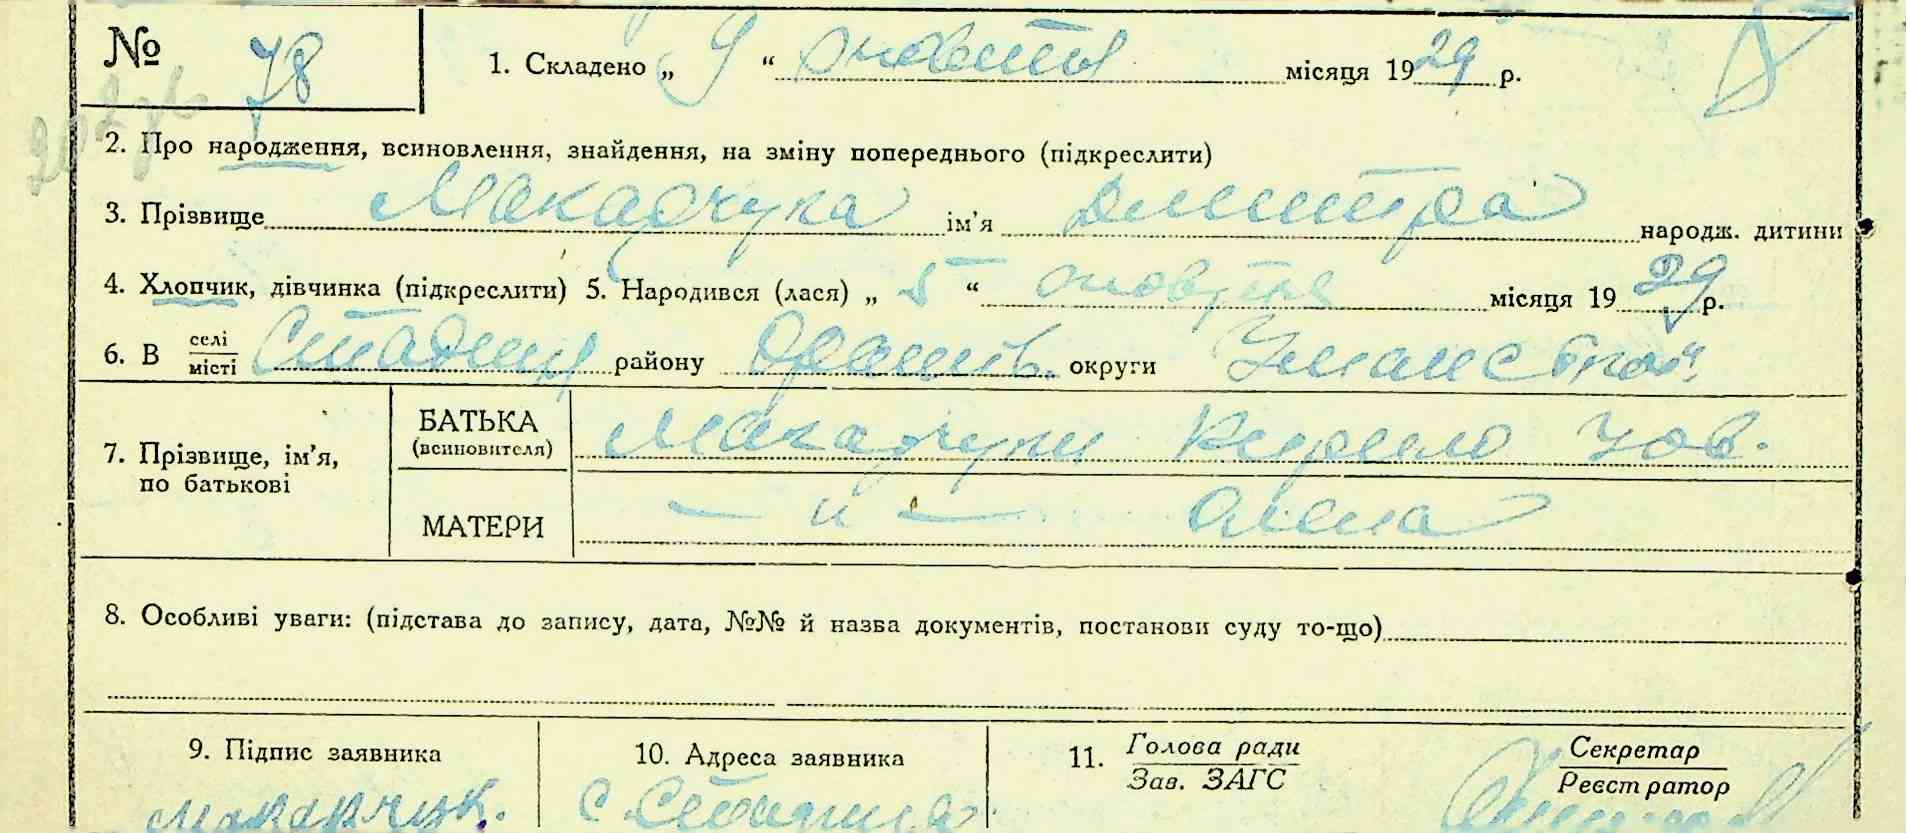 № 78 1. Складено „ 9 “ жовтня місяця 1929 р.
2. Про народження, всиновлення, знайдення, на зміну попереднього (підкреслити)
3. Прізвище Макарчука ім’я Дмитра народж. дитини
4. Хлопчик, дівчинка (підкреслити) 5. Народився (лася) „ 5 “ жовтня місяця 1929 р.
6. В селі/місті Стадниц району Оратів. округи Уманської
7. Прізвище, ім’я, по батькові
БАТЬКА (всиновителя) Макарчуки Кирило
МАТЕРИ — и — Олена
8. Особливі уваги: (підстава до запису, дата, №№ й назва документів, постанови суду то-що)
9. Підпис заявника 10. Адреса заявника 11. Голова ради/Зав. ЗАГС Секретар/Реєстратор
Макарчук. с